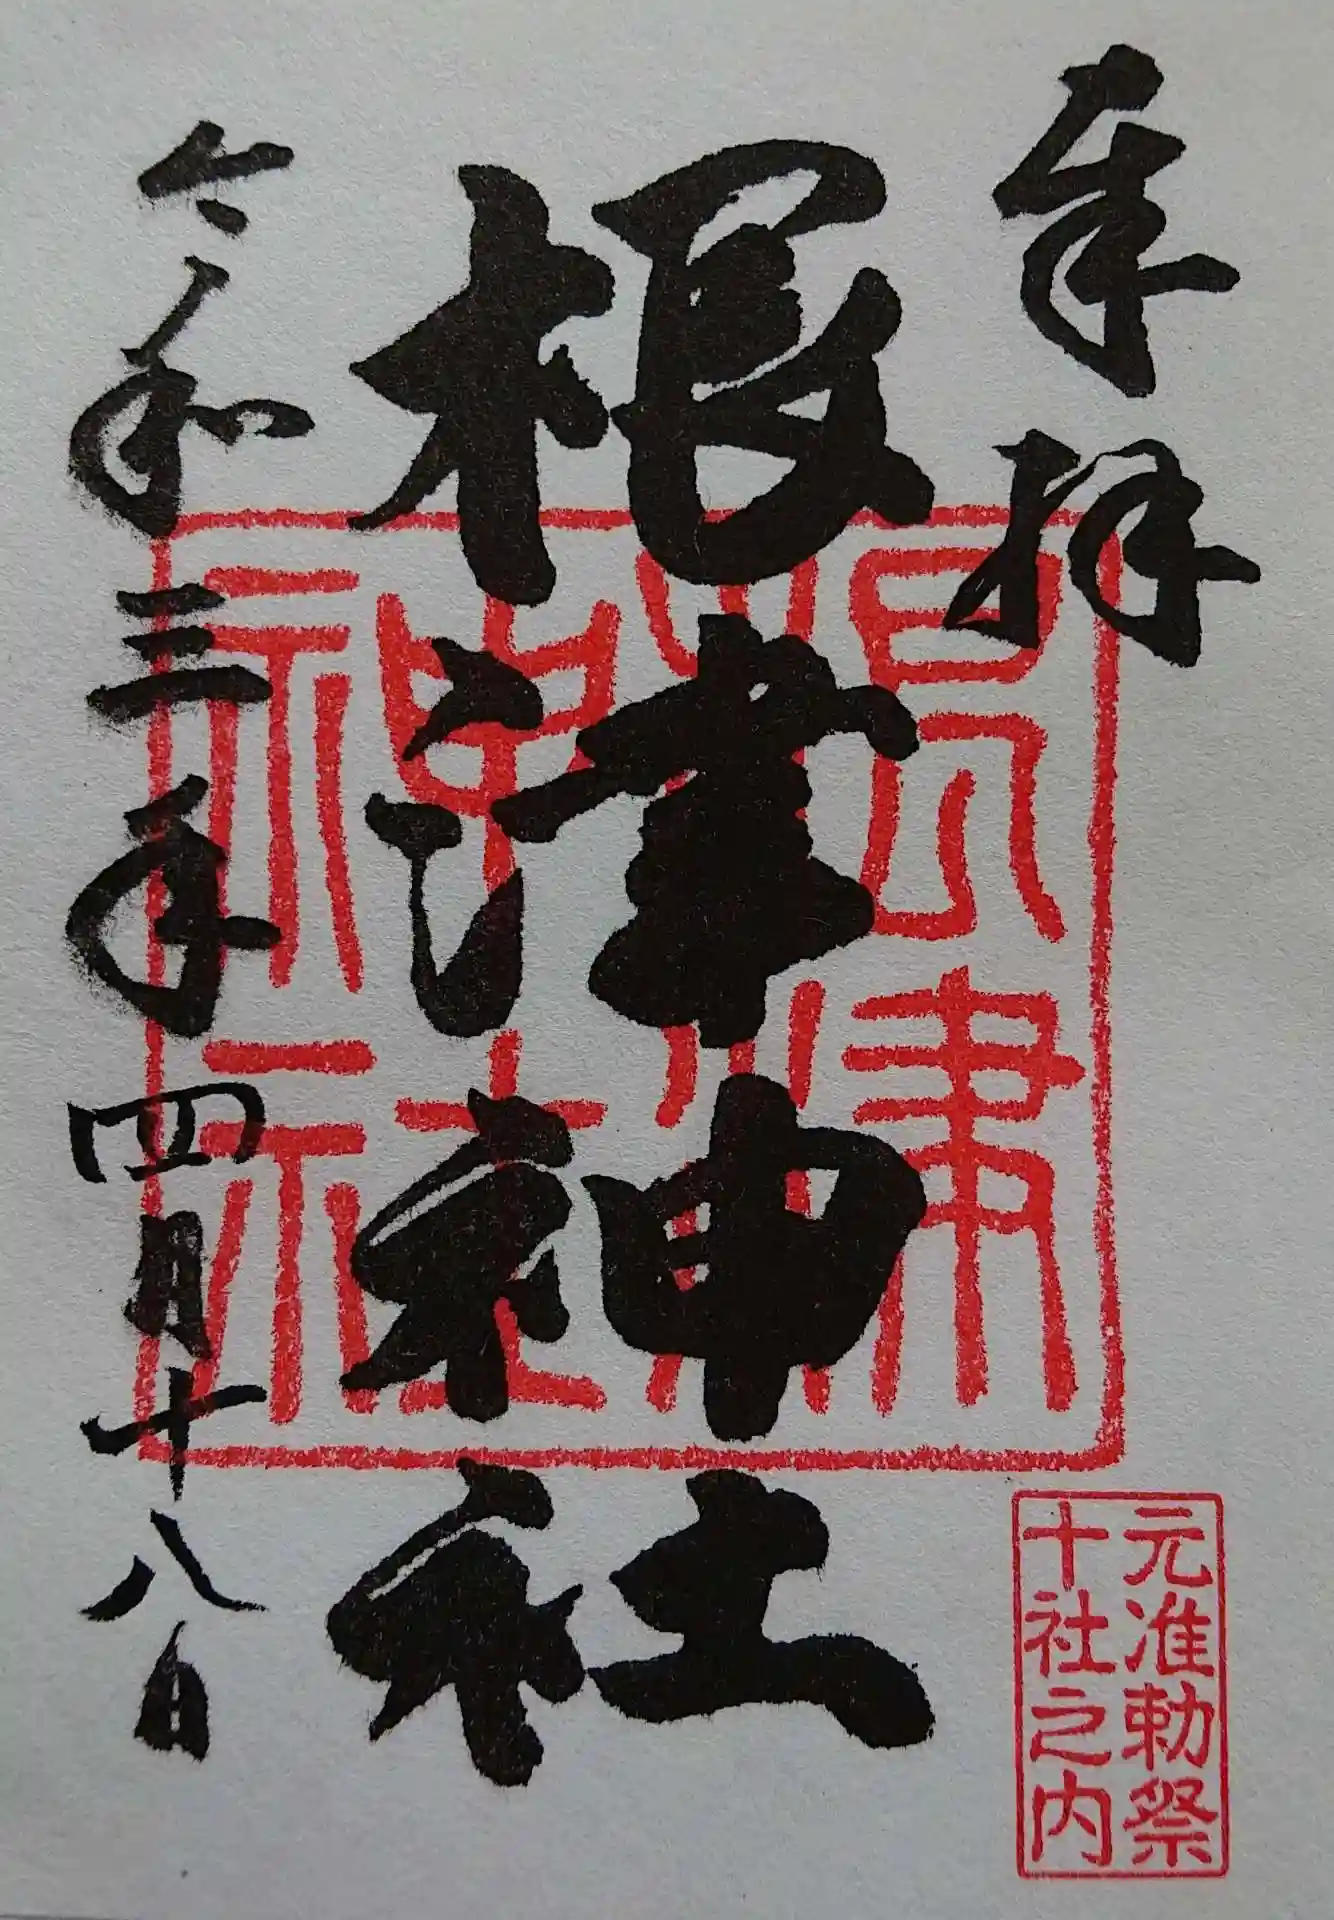 奉拝
根津神社
令和三年四月十八日
根津神社
元准勅祭
十社之内